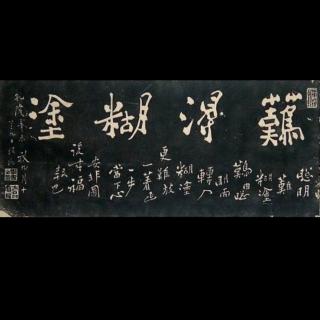 難得糊塗
聰明
難
糊塗
難由聰
明而
轉入
糊塗
更難放
一著退
一步
當下心
安非圖
後來福
報也
乾隆辛未秋九月十